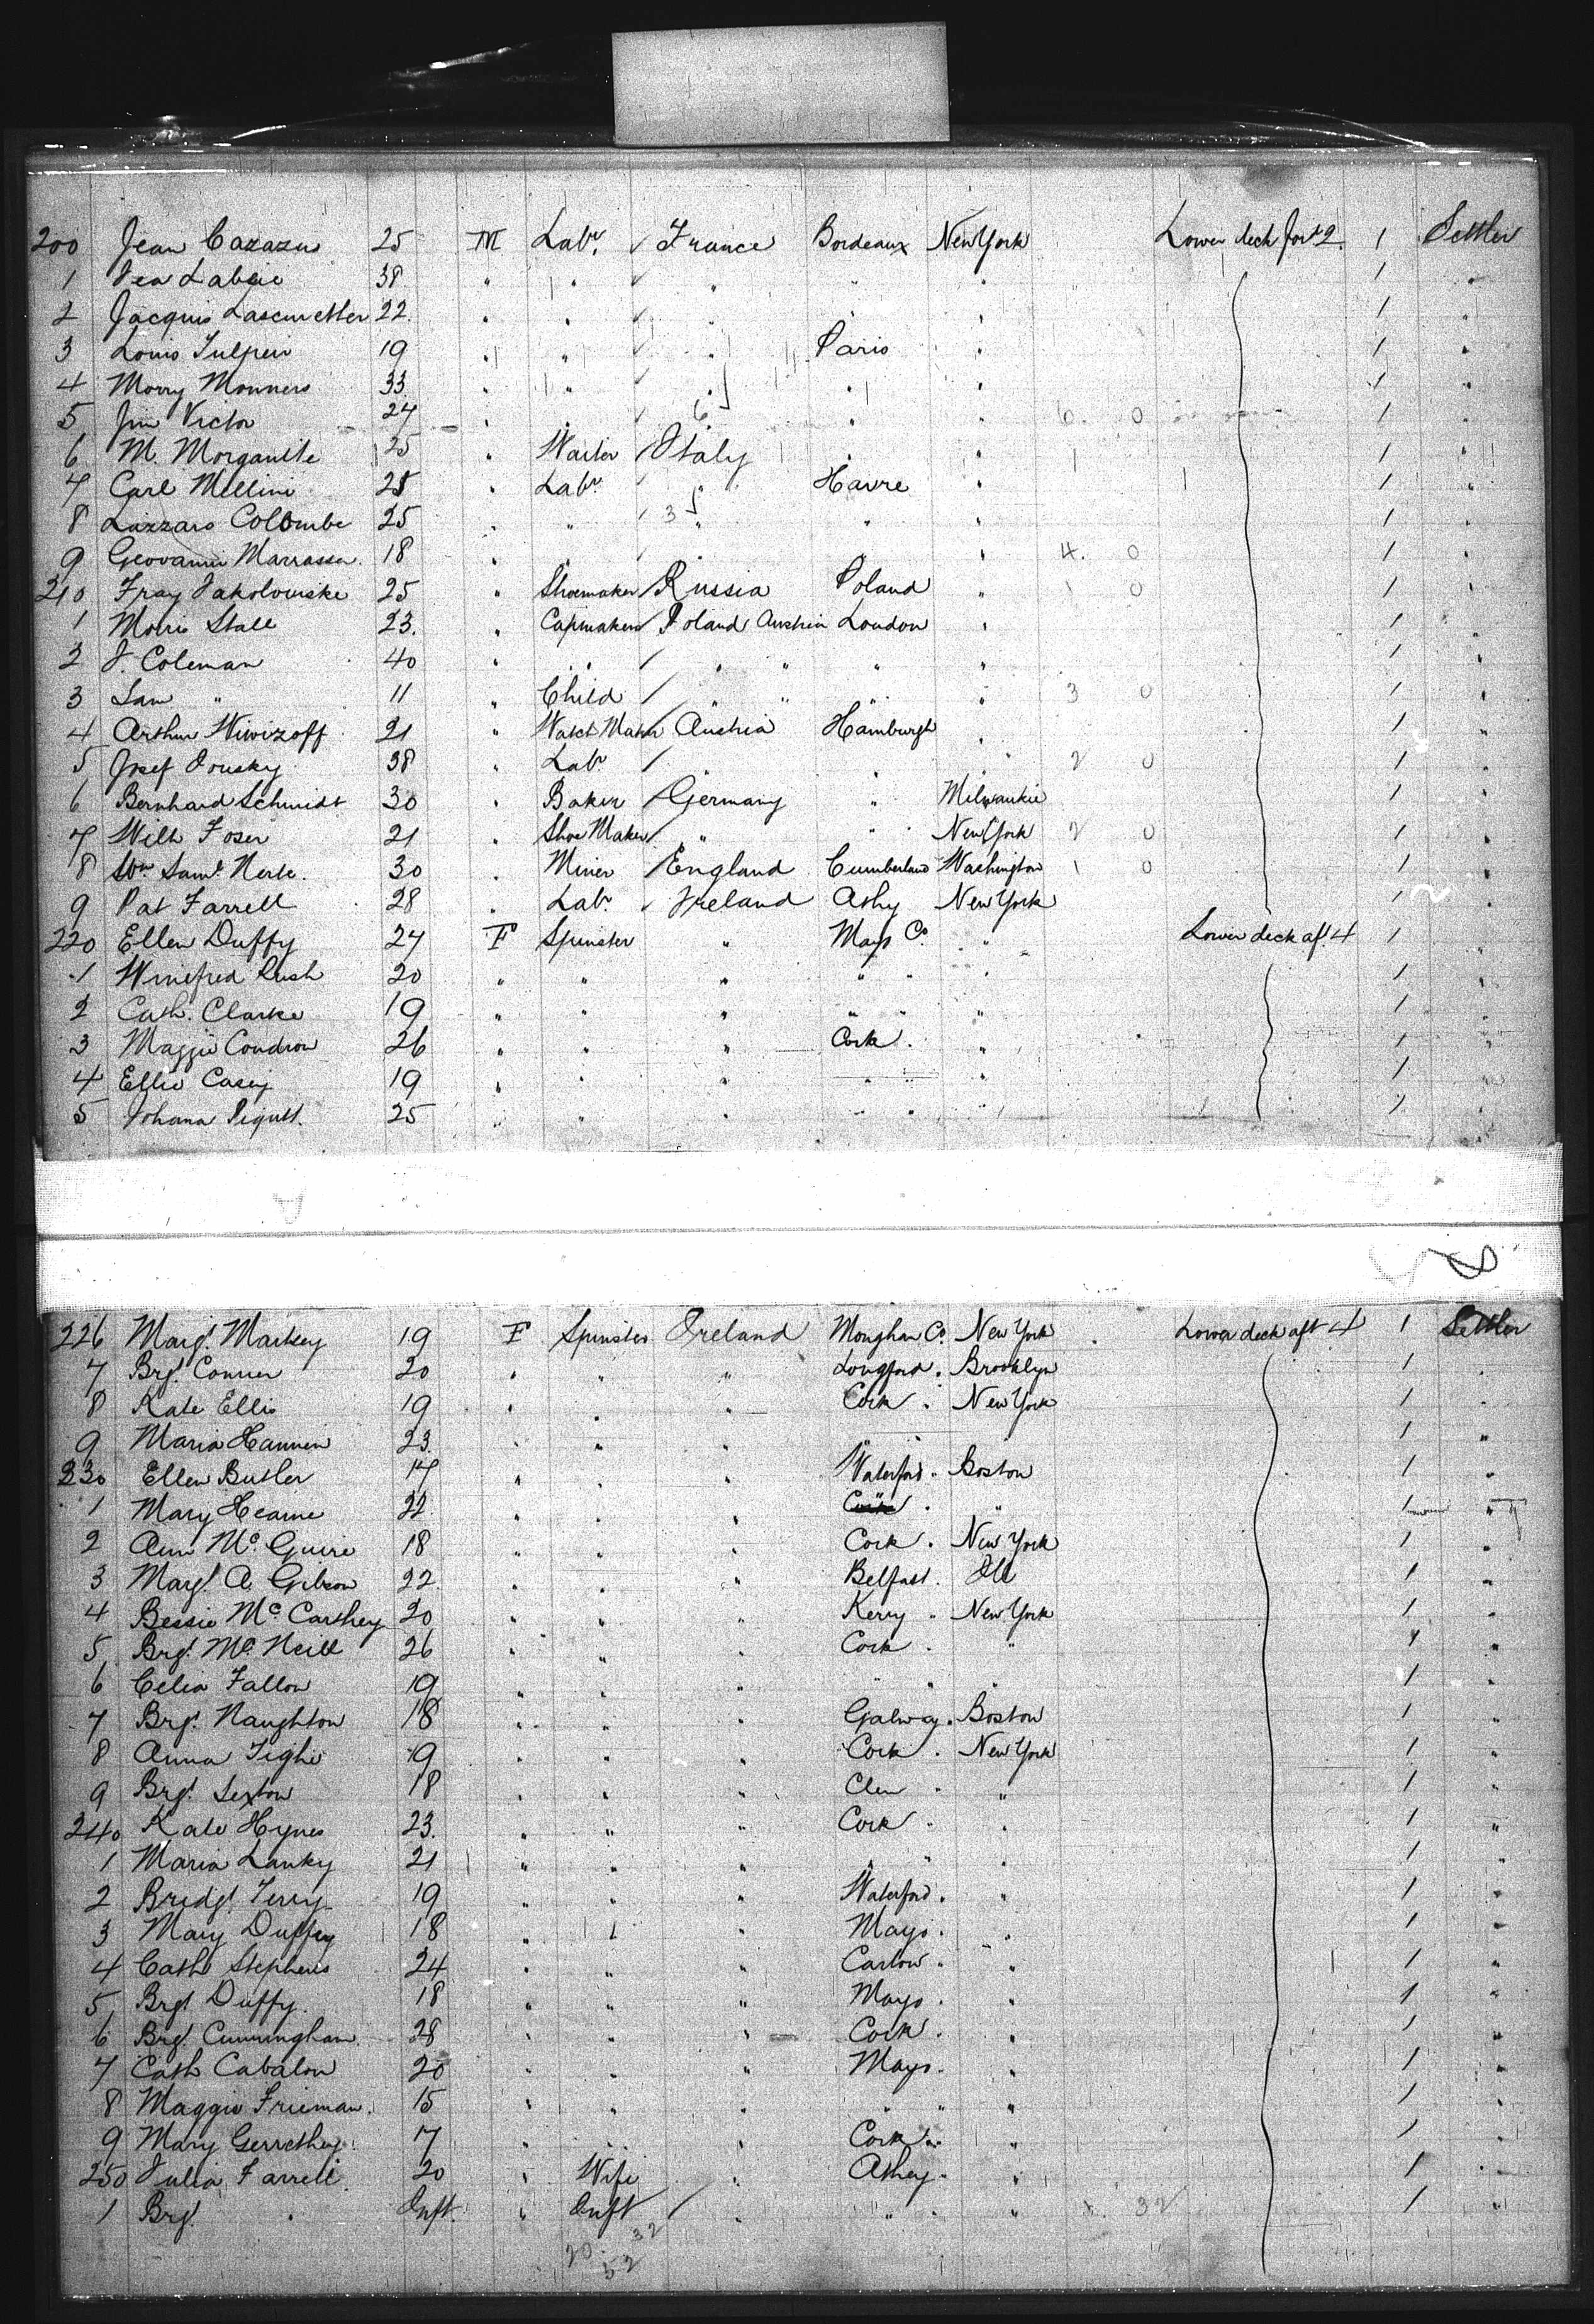 200 Jean Cazazus 25 M Labr. ✓ France Bordeaux New York Lower deck for'd 2 1 Settler
1 38 " " ✓ " " " 1 "
2 Jacquis 22 " " ✓ " " " 1 "
3 Louis 19 " " ✓ " Paris " 1 "
4 Morry Monners 33 " " ✓ " " " 1 "
5 Jim Victor 24 " " ✓ 6 " " 6. 0 1 "
6 M. Morganite 25 " Waiter / Italy " " 1 "
7 Carl Mellini 25 " Labr. / " Havre " 1 "
8 Lazzaro Colombe 25 " " / 3 " " " 1 "
9 Geovanni Marrassa 18 " " / " " " 4. 0 1 "
210 Fray Jakolowiske 25 " Shoemaker / Russia Poland " 1 0 1 "
1 Moris Stall 23. " Capmaker / Poland Austria London " 1 "
2 J. Coleman 40 " " / " " " " 1 "
3 Sam " 11 " Child / " " " " 3 0 1 "
4 Arthur Wiwizoff 21 " Watch Maker Austria Hamburgh " 1 "
5 Josef 38 " Labr. / " " " 2 0 1 "
6 Bernhard Schmidt 30 " Baker / Germany " Milwaukie 1 "
7 Wilh Foser 21 " Shoe Maker / " " New York 2 0 1 "
8 Wm Saml. 30 " Miner / England Cumberland Washington 1 0 1 "
9 Pat Farrell 28 " Labr. ✓ Ireland Athy New York 1 "
220 Ellen Duffy 24 F Spinster " Mayo Co. " Lower deck aft 4 1 "
1 Winefred Rush 20 " " " " " " 1 "
2 Cath. Clarke 19 " " " " " " 1 "
3 Maggie Condron 26 " " " Cork. " 1 "
4 Ellie Casey 19 " " " " " " 1 "
5 Johana 25 " " " " " " 1 "
226 Margt. Markey 19 F Spinster Ireland Monghan Co. New York Lower deck aft 4 1 Settler
7 Brgt. Conner 20 " " " Longford " Brooklyn 1 "
8 Kate Ellis 19 " " " Cork " New York 1 "
9 Maria Hannen 23. " " " " " " 1 "
230 Ellen Butler 17 " " " Waterford " Boston 1 "
1 Mary Hearne 22 " " " Cork " " 1 "
2 Ann Mc.Guire 18 " " " Cork " New York 1 "
3 Margt. A. Gibson 22 " " " Belfast. Ill 1 "
4 Bessie Mc.Carthey 20 " " " Kerry " New York 1 "
5 Brgt. Mc.Neill 26 " " " Cork " " 1 "
6 Celia Fallon 19 " " " " " " 1 "
7 Brgt. Naughton 18 " " " Galway " Boston 1 "
8 Anna Tighe 19 " " " Cork " New York 1 "
9 Brgt. Sexton 18 " " " Clew " " 1 "
240 Kate Hynes 23. " " " Cork " " 1 "
1 Maria Lanky 21 " " " " " " 1 "
2 Bridgt. Terry 19 " " " Waterford " " 1 "
3 Mary Duffey 18 " " " Mayo " " 1 "
4 Cath Stephens 24 " " " Carlow " " 1 "
5 Brgt Duffy. 18 " " " Mayo " " 1 "
6 Brgt. Cunningham 28 " " " Cork " " 1 "
7 Cath Cabalon 20 " " " Mayo " " 1 "
8 Maggie Frieman. 15 " " " " " " 1 "
9 Mary Gerrethey 17 " " " Cork " " 1 "
250 Julia Farrell 20 " Wife " Athey " " 1 "
1 Brgt. " Inft. " Inft / " " " " 32 1 "
32
20
52